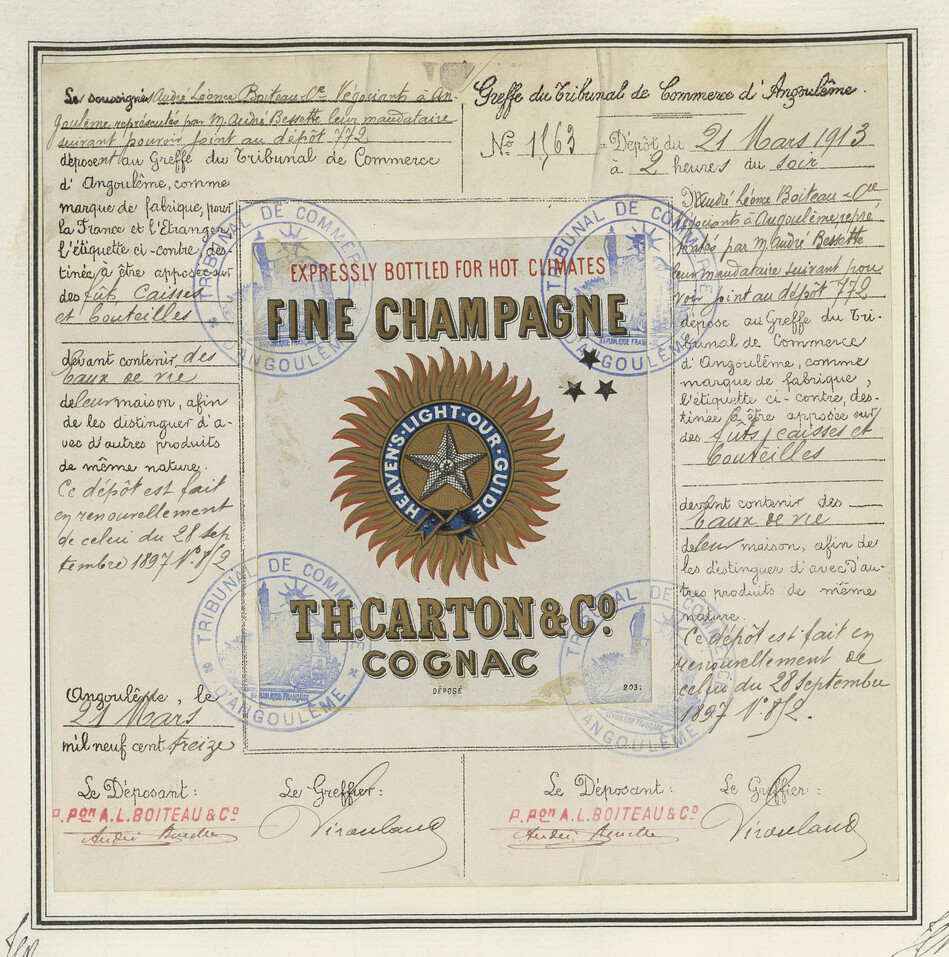 Les soussignés André Léonce Boiteau & Cie Négociants à An-
goulême représentés par M. André Bessette leur mandataire
suivant pouvoir joint au dépôt 772
déposent au Greffe du Tribunal de Commerce
d'Angoulême, comme
marque de fabrique, pour
la France et l'Etranger
l'étiquette ci-contre, des-
tinée à être apposée sur
des fûts, caisses
et bouteilles
devant contenir des
Eaux de vie
de leur maison, afin
de les distinguer d'a-
vec d'autres produits
de même nature.
Ce dépôt est fait
en renouvellement
de celui du 28 sep
tembre 1897 N° 8/2.
Angoulême, le
21 Mars
mil neuf cent treize
Le Déposant:
Le Greffier:
P. Pon A.L. BOITEAU & Co
André Bessette
Greffe du Tribunal de Commerce d'Angoulême.
No 1,63
Dépôt du 21 Mars 1913
à 2 heures du soir
André Léonce Boiteau & Cie
Négociants à Angoulême repré
sentés par M. André Bessette
leur mandataire suivant pou
voir joint au dépôt 772
dépose au Greffe du Tri-
bunal de Commerce
d'Angoulême, comme
marque de fabrique,
l'étiquette ci-contre, des-
tinée à être apposée sur
des fûts, caisses et
bouteilles
devant contenir des
Eaux de vie
de leur maison, afin de
les distinguer d'avec d'au-
tres produits de même
nature.
Ce dépôt est fait en
renouvellement de
celui du 28 septembre
1897 N° 8/2.
Le Déposant:
Le Greffier:
P. Pon A.L. BOITEAU & Co
André Bessette
EXPRESSLY BOTTLED FOR HOT CLIMATES
FINE CHAMPAGNE
HEAVEN'S·LIGHT·OUR·GUIDE
TH. CARTON & Co
COGNAC
DÉPOSÉ
203
TRIBUNAL DE COMMERCE
D'ANGOULÊME
RÉPUBLIQUE FRANÇAISE
TRIBUNAL DE COMMERCE
D'ANGOULÊME
RÉPUBLIQUE FRANÇAISE
TRIBUNAL DE COMMERCE
D'ANGOULÊME
RÉPUBLIQUE FRANÇAISE
TRIBUNAL DE COMMERCE
D'ANGOULÊME
RÉPUBLIQUE FRANÇAISE